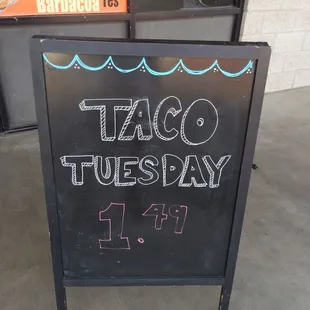 Barbacoa Tes
TACO
TUESDAY
1.49